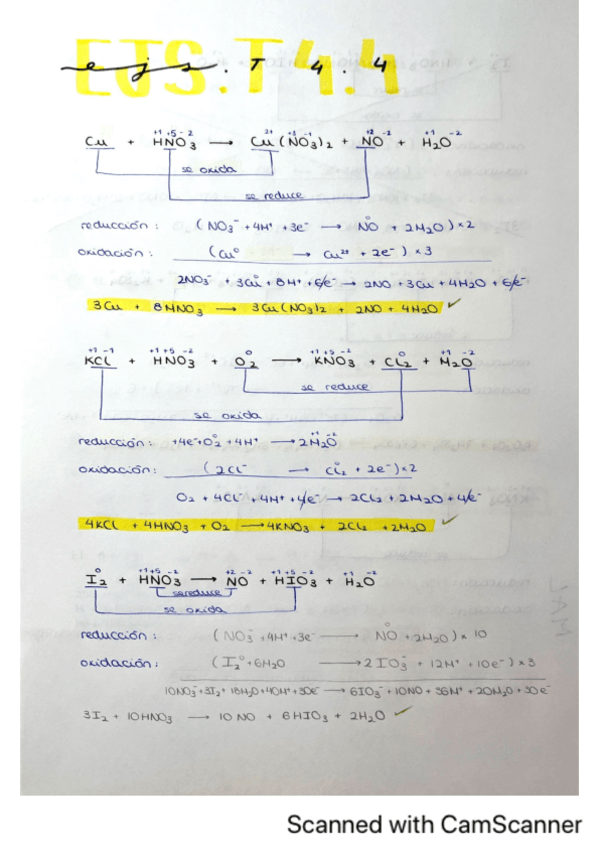 EJS.T4.4
ejs. T 4.4
+1 +5 -2 2+ +5 -1 +2 -2 +1 -2
Cu + HNO3 → Cu(NO3)2 + NO + H2O
se oxida
se reduce
reducción: (NO3⁻ + 4H⁺ + 3e⁻ → NO + 2H2O) × 2
oxidación: (Cu⁰ → Cu²⁺ + 2e⁻) × 3
2NO3⁻ + 3Cu⁰ + 8H⁺ + 6e⁻ → 2NO + 3Cu + 4H2O + 6e⁻
3Cu + 8HNO3 → 3Cu(NO3)2 + 2NO + 4H2O ✓
+1 -1 +1 +5 -2 0 +1 +5 -2 0 +1 -2
KCl + HNO3 + O2 → KNO3 + Cl2 + H2O
se reduce
se oxida
reducción: +4e⁻ + O2⁰ + 4H⁺ → 2H2O
oxidación: (2Cl⁻ → Cl2⁰ + 2e⁻) × 2
O2 + 4Cl⁻ + 4H⁺ + 4e⁻ → 2Cl2 + 2H2O + 4e⁻
4KCl + 4HNO3 + O2 → 4KNO3 + 2Cl2 + 2H2O ✓
0 +1 +5 -2 +2 -2 +1 +5 -2 +1 -2
I2 + HNO3 → NO + HIO3 + H2O
se reduce
se oxida
reducción: (NO3⁻ + 4H⁺ + 3e⁻ → NO + 2H2O) × 10
oxidación: (I2⁰ + 6H2O → 2IO3⁻ + 12H⁺ + 10e⁻) × 3
10NO3⁻ + 3I2 + 18H2O + 40H⁺ + 30e⁻ → 6IO3⁻ + 10NO + 36H⁺ + 20H2O + 30e⁻
3I2 + 10HNO3 → 10NO + 6HIO3 + 2H2O ✓
Scanned with CamScanner